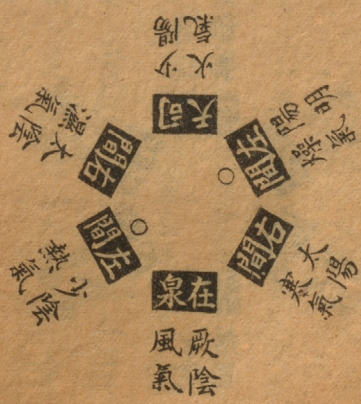 司天
少陽
火氣
左間
陽明
燥氣
右間
太陽
寒氣
在泉
厥陰
風氣
左間
少陰
熱氣
右間
太陰
濕氣